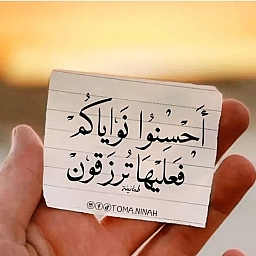 أَحْسِنُوا نَوَاياكُمْ
فَعَلِيْهَا تُرزَقُونْ
TOMA.NINAH